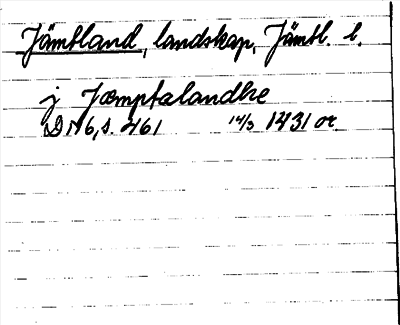 Jämtland, landskap, Jämtl. l.
j Jæmptalandhe
DN 6, s. 461 14/3 1431 or.